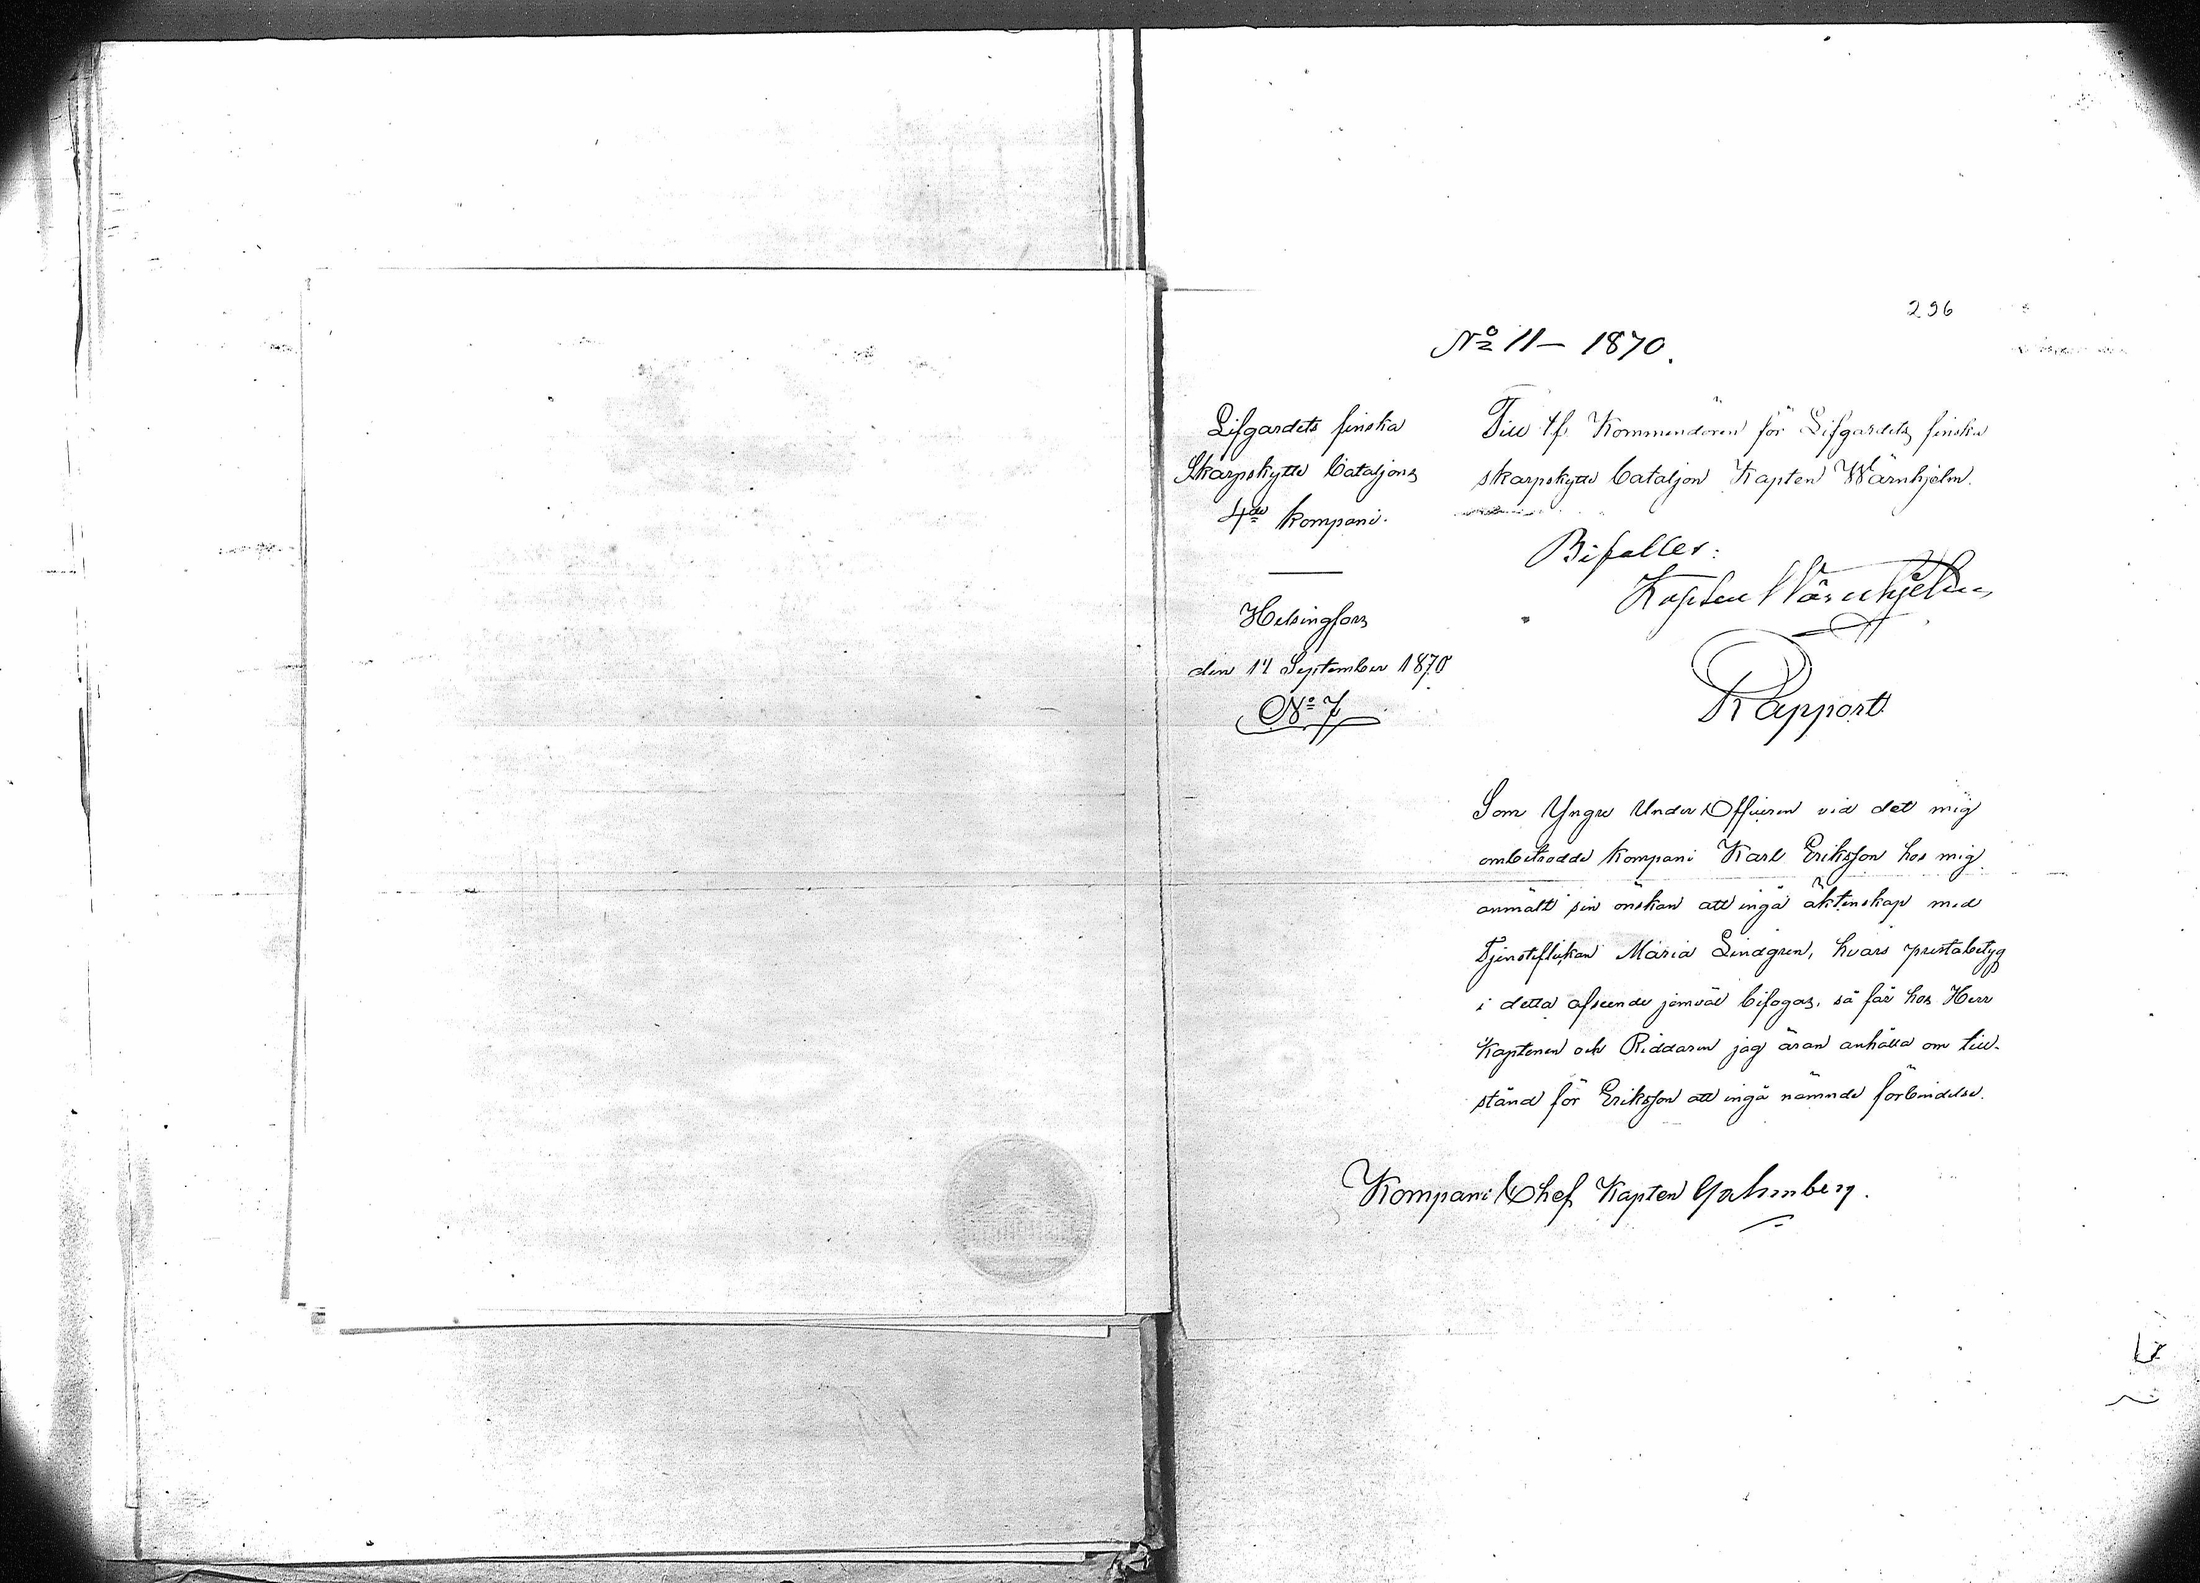 296
No 11 – 1870.
Lifgardets finska
Skarpskytte bataljons
4de kompani.
Helsingfors
den 14 September 1870
No 7
Till tf. Kommendören för Lifgardets finska
skarpskytte bataljon Kapten Wärnhjelm.
Bifalles:
Kapten Wärnhjelm
Rapport
Som Yngre Under Officeren vid det mig
ombetrodde kompani Karl Eriksson hos mig
anmält sin önskan att ingå äktenskap med
Tjensteflickan Maria Lindgren, hvars prestabetyg
i detta afseende jemväl bifogas, så får hos Herr
Kaptenen och Riddaren jag äran anhålla om till-
stånd för Eriksson att ingå nämnde förbindelse.
Kompani Chef Kapten